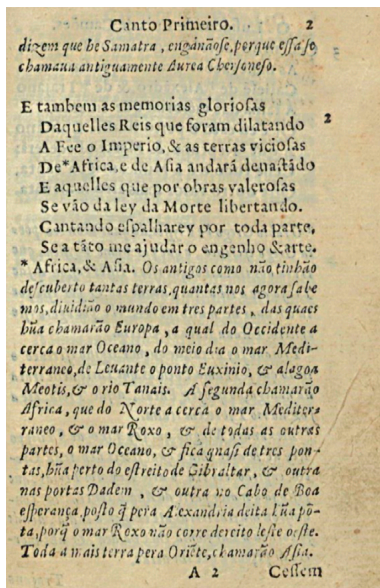 Canto Primeiro. 2
dizem que he Samatra, enganãose, porque essa se
chamaua antiguamente Aurea Chersoneso.
E tambem as memorias gloriosas
Daquelles Reis que foram dilatando 2
A Fee o Imperio, & as terras viciosas
De*Africa, e de Asia andarã deuastãdo
E aquelles que por obras valerosas
Se vão da ley da Morte libertando.
Cantando espalharey por toda parte,
Se a tãto me ajudar o engenho &arte.
* Africa, & Asia. Os antigos como não tinhão
descuberto tantas terras, quantas nos agora sabe
mos, diuidião o mundo em tres partes, das quaes
hũa chamarão Europa, a qual do Occidente a
cerca o mar Oceano, do meio dia o mar Medi-
terraneo, de Leuante o ponto Euxinio, & alagoa
Meotis, & o rio Tanais. A segunda chamarão
Africa, que do Norte a cerca o mar Meditera
raneo, & o mar Roxo, & de todas as outras
partes, o mar Oceano, & fica quasi de tres pon-
tas, hũa perto do estreito de Gibraltar, & outra
nas portas Dadem, & outra no Cabo de Boa
esperança, posto q̃ pera Alexandria deita hũa põ-
ta, porq̃ o mar Roxo não corre dereito leste oeste.
Toda a mais terra pera Oriẽte, chamarão Asia.
A 2 Cessem